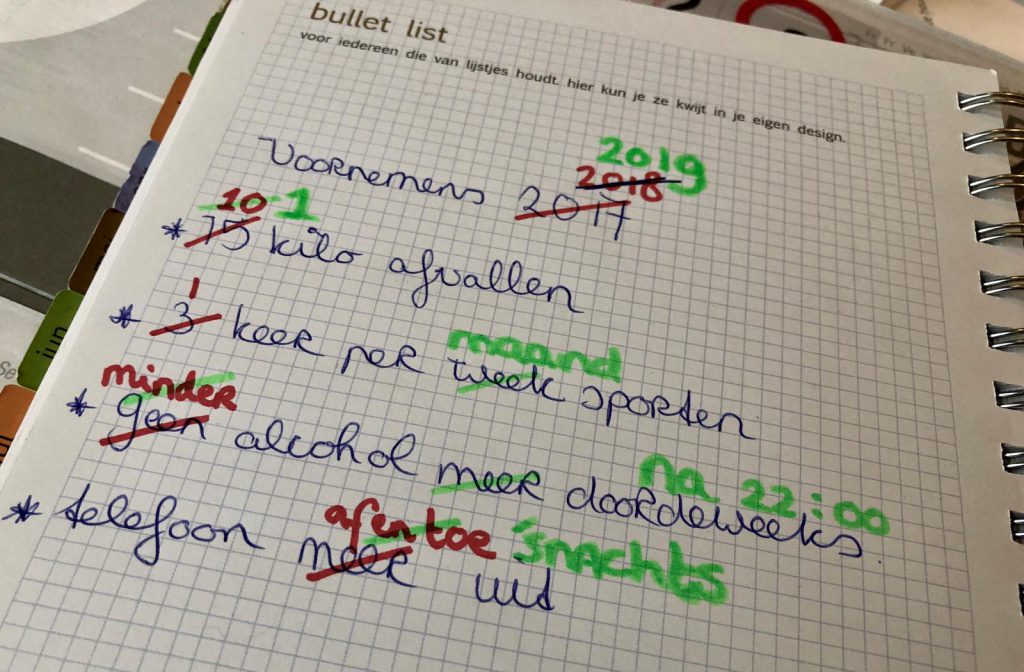 bullet list
voor iedereen die van lijstjes houdt. hier kun je ze kwijt in je eigen design.
2019
2018
Voornemens 2017
10 1
* 15 kilo afvallen
1
* 3 keer per week sporten
maand
minder
* geen alcohol meer doordeweeks.
na 22:00
af en toe 'snachts
* telefoon meer uit
jun